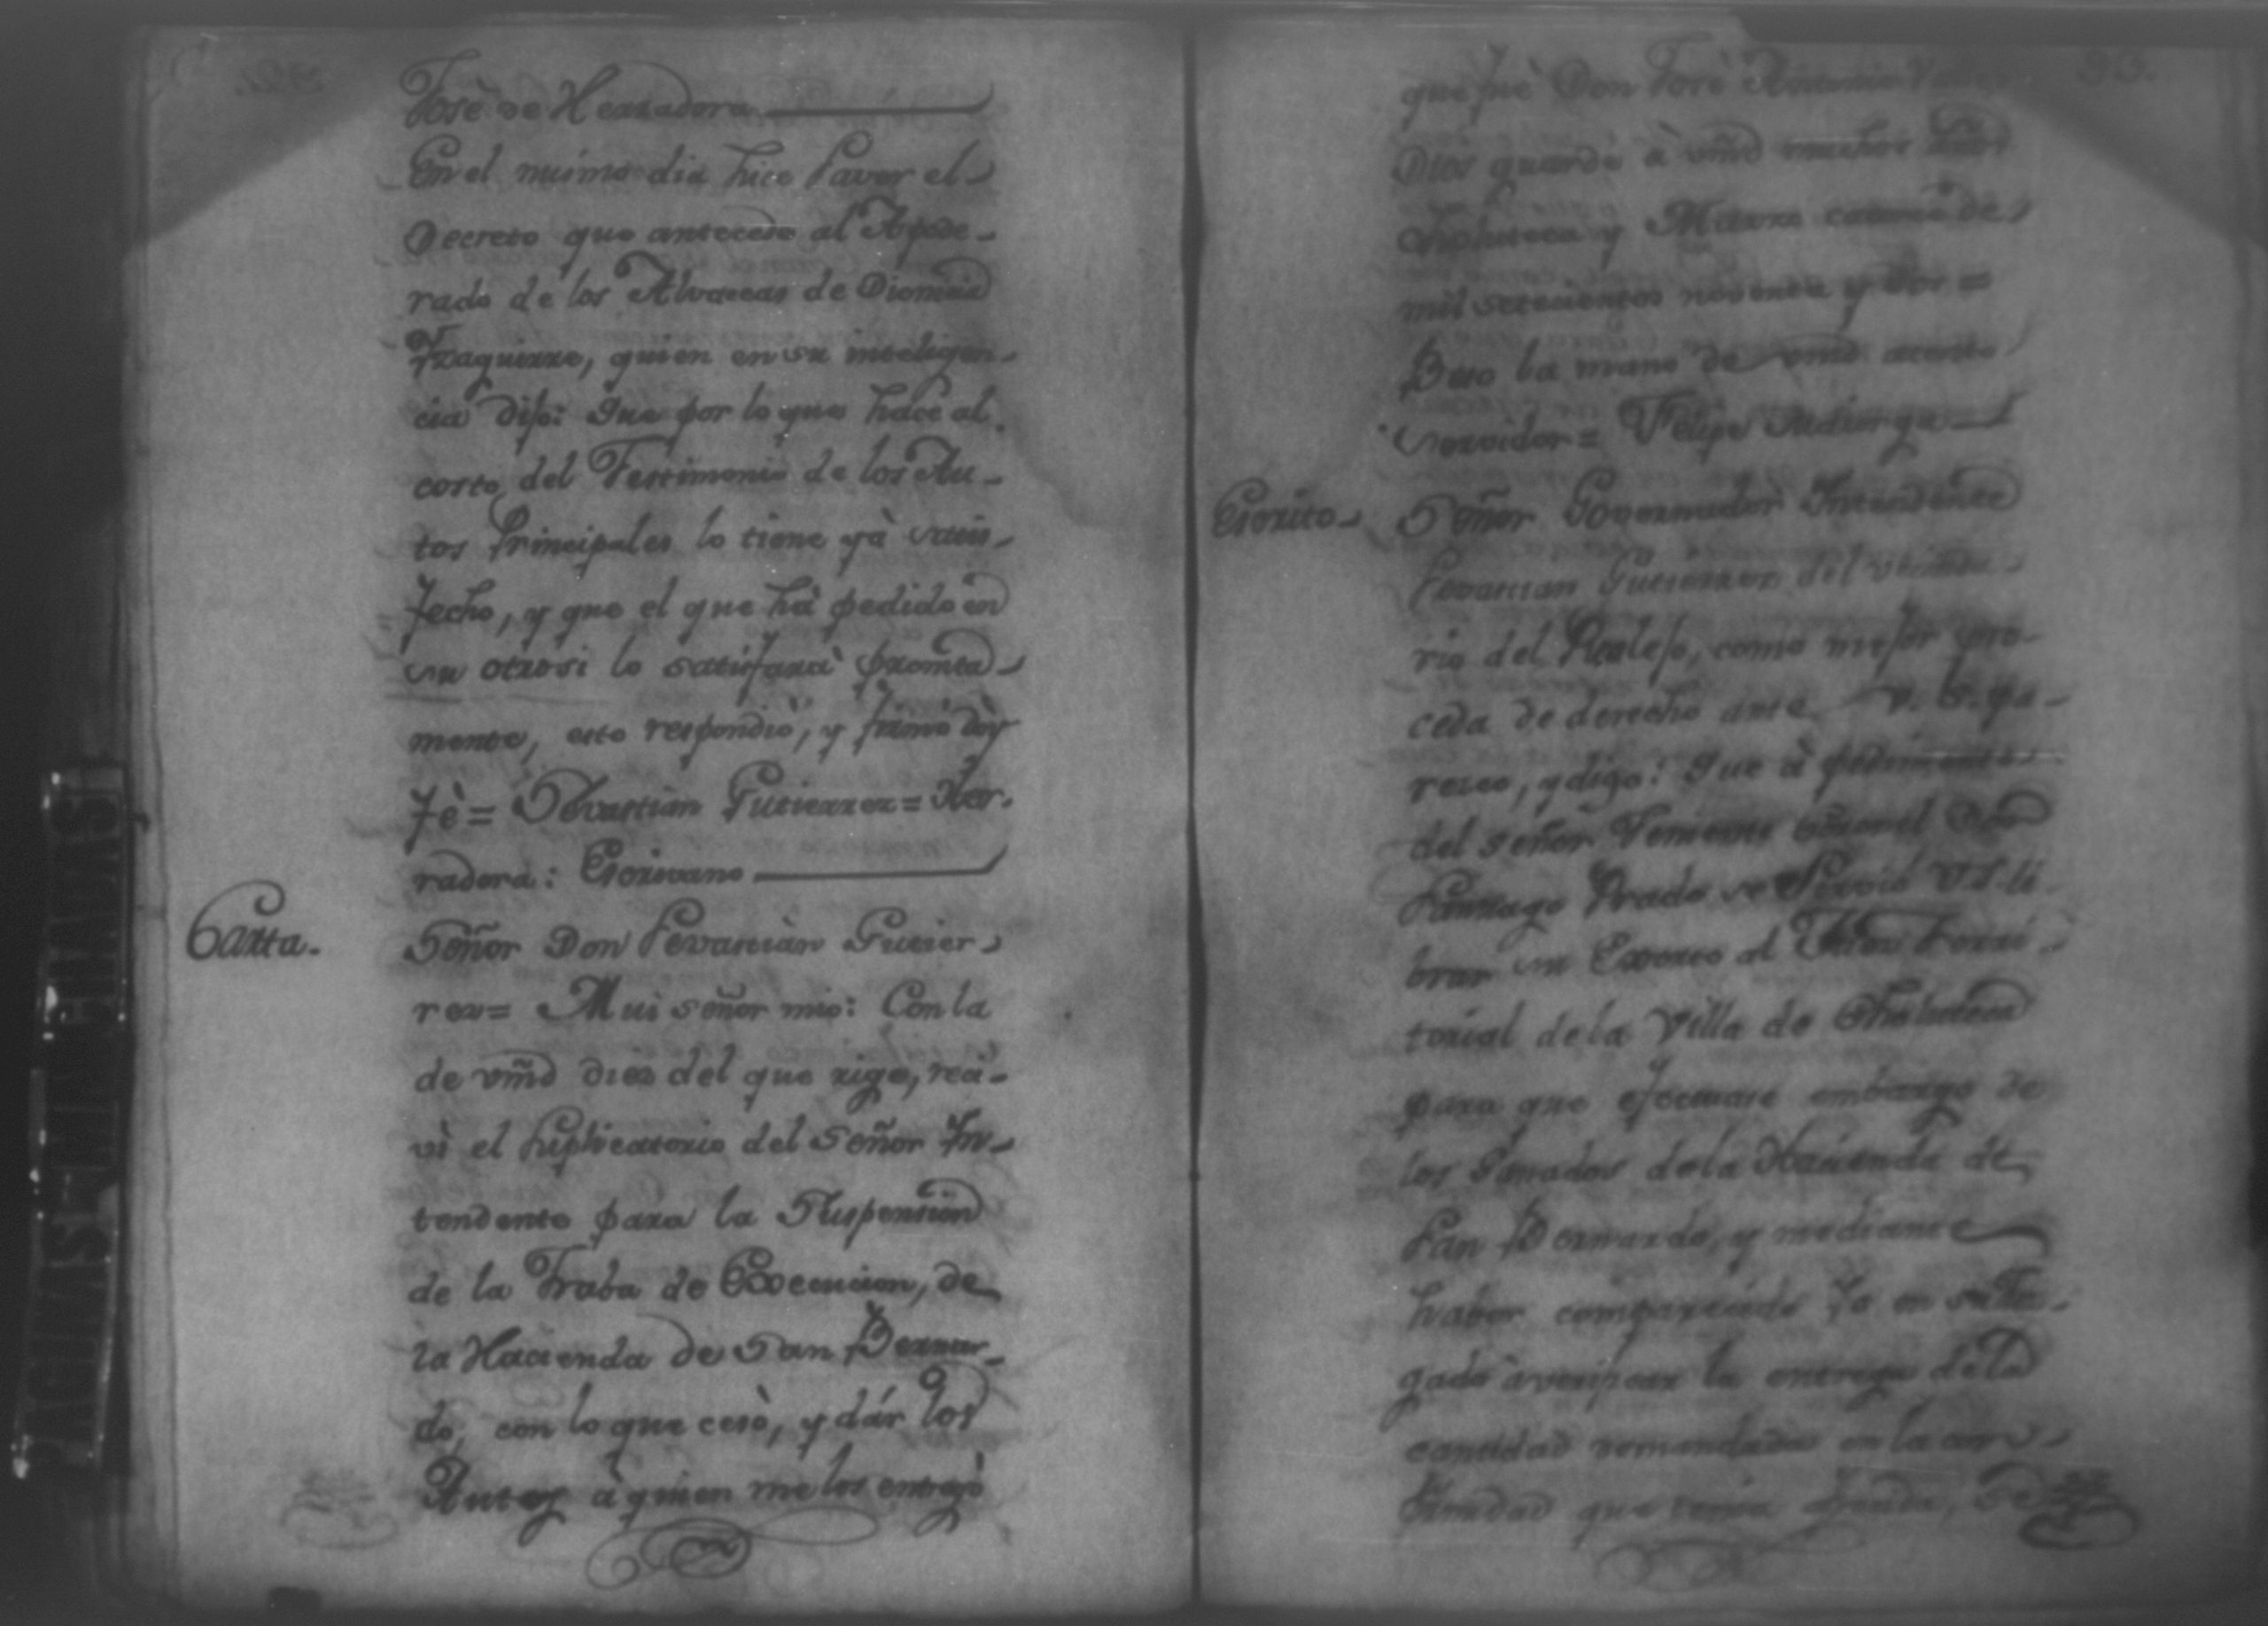 José de Herradora
En el mismo dia hice saver el
Decreto que antecede al Apode-
rado de los Alvaceas de Dionicia
Yzaguirre, quien en su inteligen-
cia dijo: Que por lo que hace al
costo del Testimonio de los Au-
tos Principales lo tiene yà satis-
fecho, y que el que hà pedido en
su otrosi lo satisfarà promta-
mente, esto respondiò, y firmò doy
fè = Sevastian Gutierrez = Her-
radora: Escrivano
Carta.
Señor Don Sevastian Gutier-
rez = Mui señor mio: Con la
de vmd diez del que rige, reci-
vi el suplicatorio del Señor In-
tendente para la Suspension
de la Traba de Execucion, de
la Hacienda de San Bernar-
do, con lo que cesò, y dár los
Autos à quien me los entregò
que fuè Don José Antonio
Dios guarde à vmd muchos años
Choluteca y Marzo catorce de
mil setecientos noventa y dos =
Beso la mano de vmd atento
servidor = Felipe
Escrito
Señor Governador Intendente
Sevastian Gutierrez del vecinda-
rio del Realejo, como mejor pro-
ceda de derecho ante V. S. pa-
resco, y digo: Que à pedimento
del señor Teniente Coronel Don
Santiago Prado se sirviò VS. li-
brar su Exorto al Juez Terri-
torial de la Villa de Choluteca
para que efectuase embargo de
los Ganados de la Hacienda de
San Bernardo, y mediante
haber comparecido Yo en su Juz-
gado à verificar la entrega de la
cantidad demandada en la
que